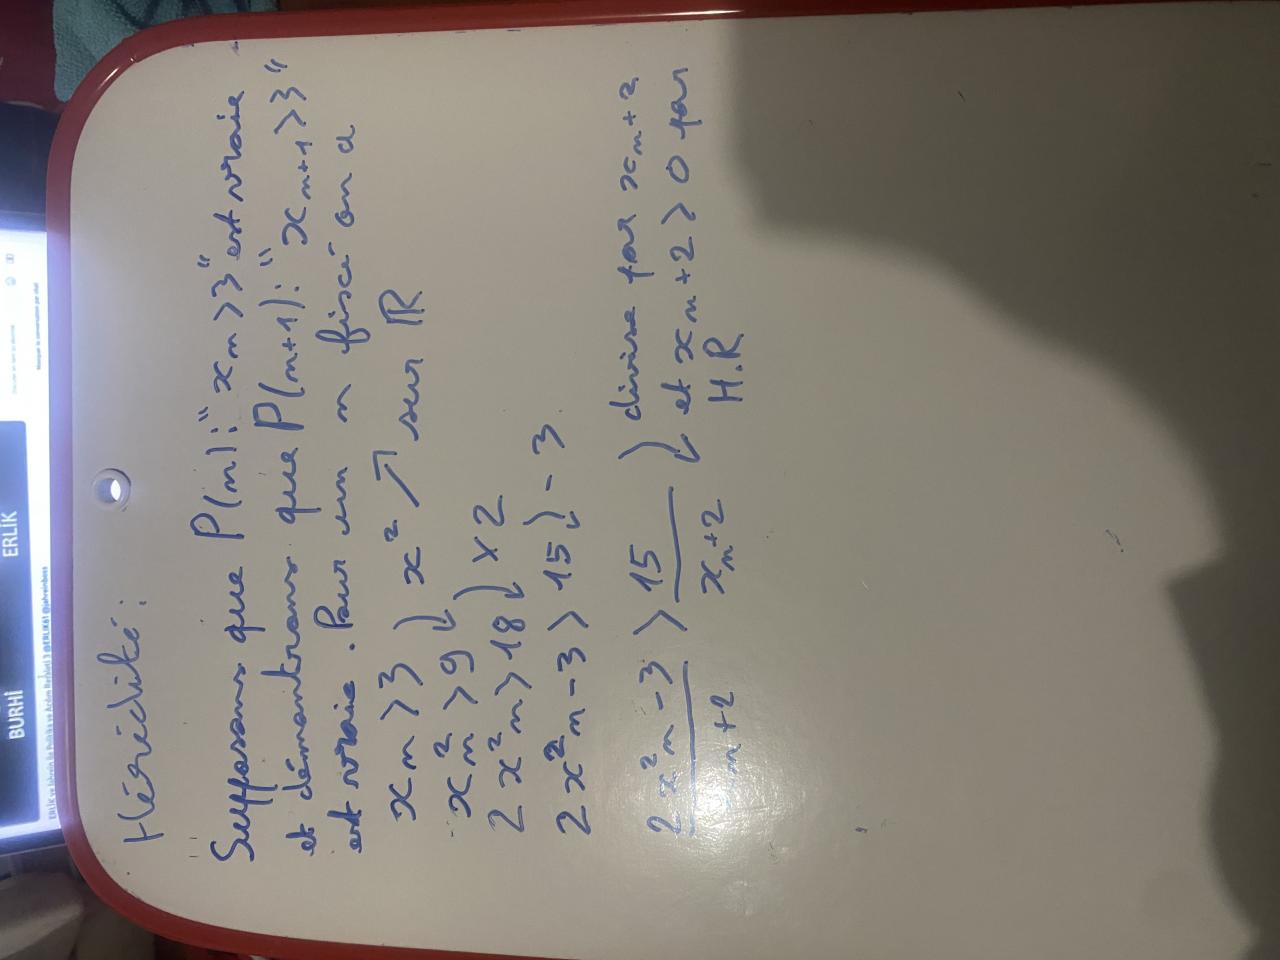 Hérédité :
Supposons que P(n): "xn > 3" est vraie
et démontrons que P(n+1): "xn+1 > 3"
est vraie. Pour un n fixé on a
xn > 3 ) x² ↗ sur ℝ
xn² > 9 ) × 2
2x²n > 18
2x²n - 3 > 15 ) - 3
2x²n - 3 / xn+2 > 15 / xn+2 ) divise par xn+2
et xn+2 > 0 par
H.R
BURHİ
ERLİK